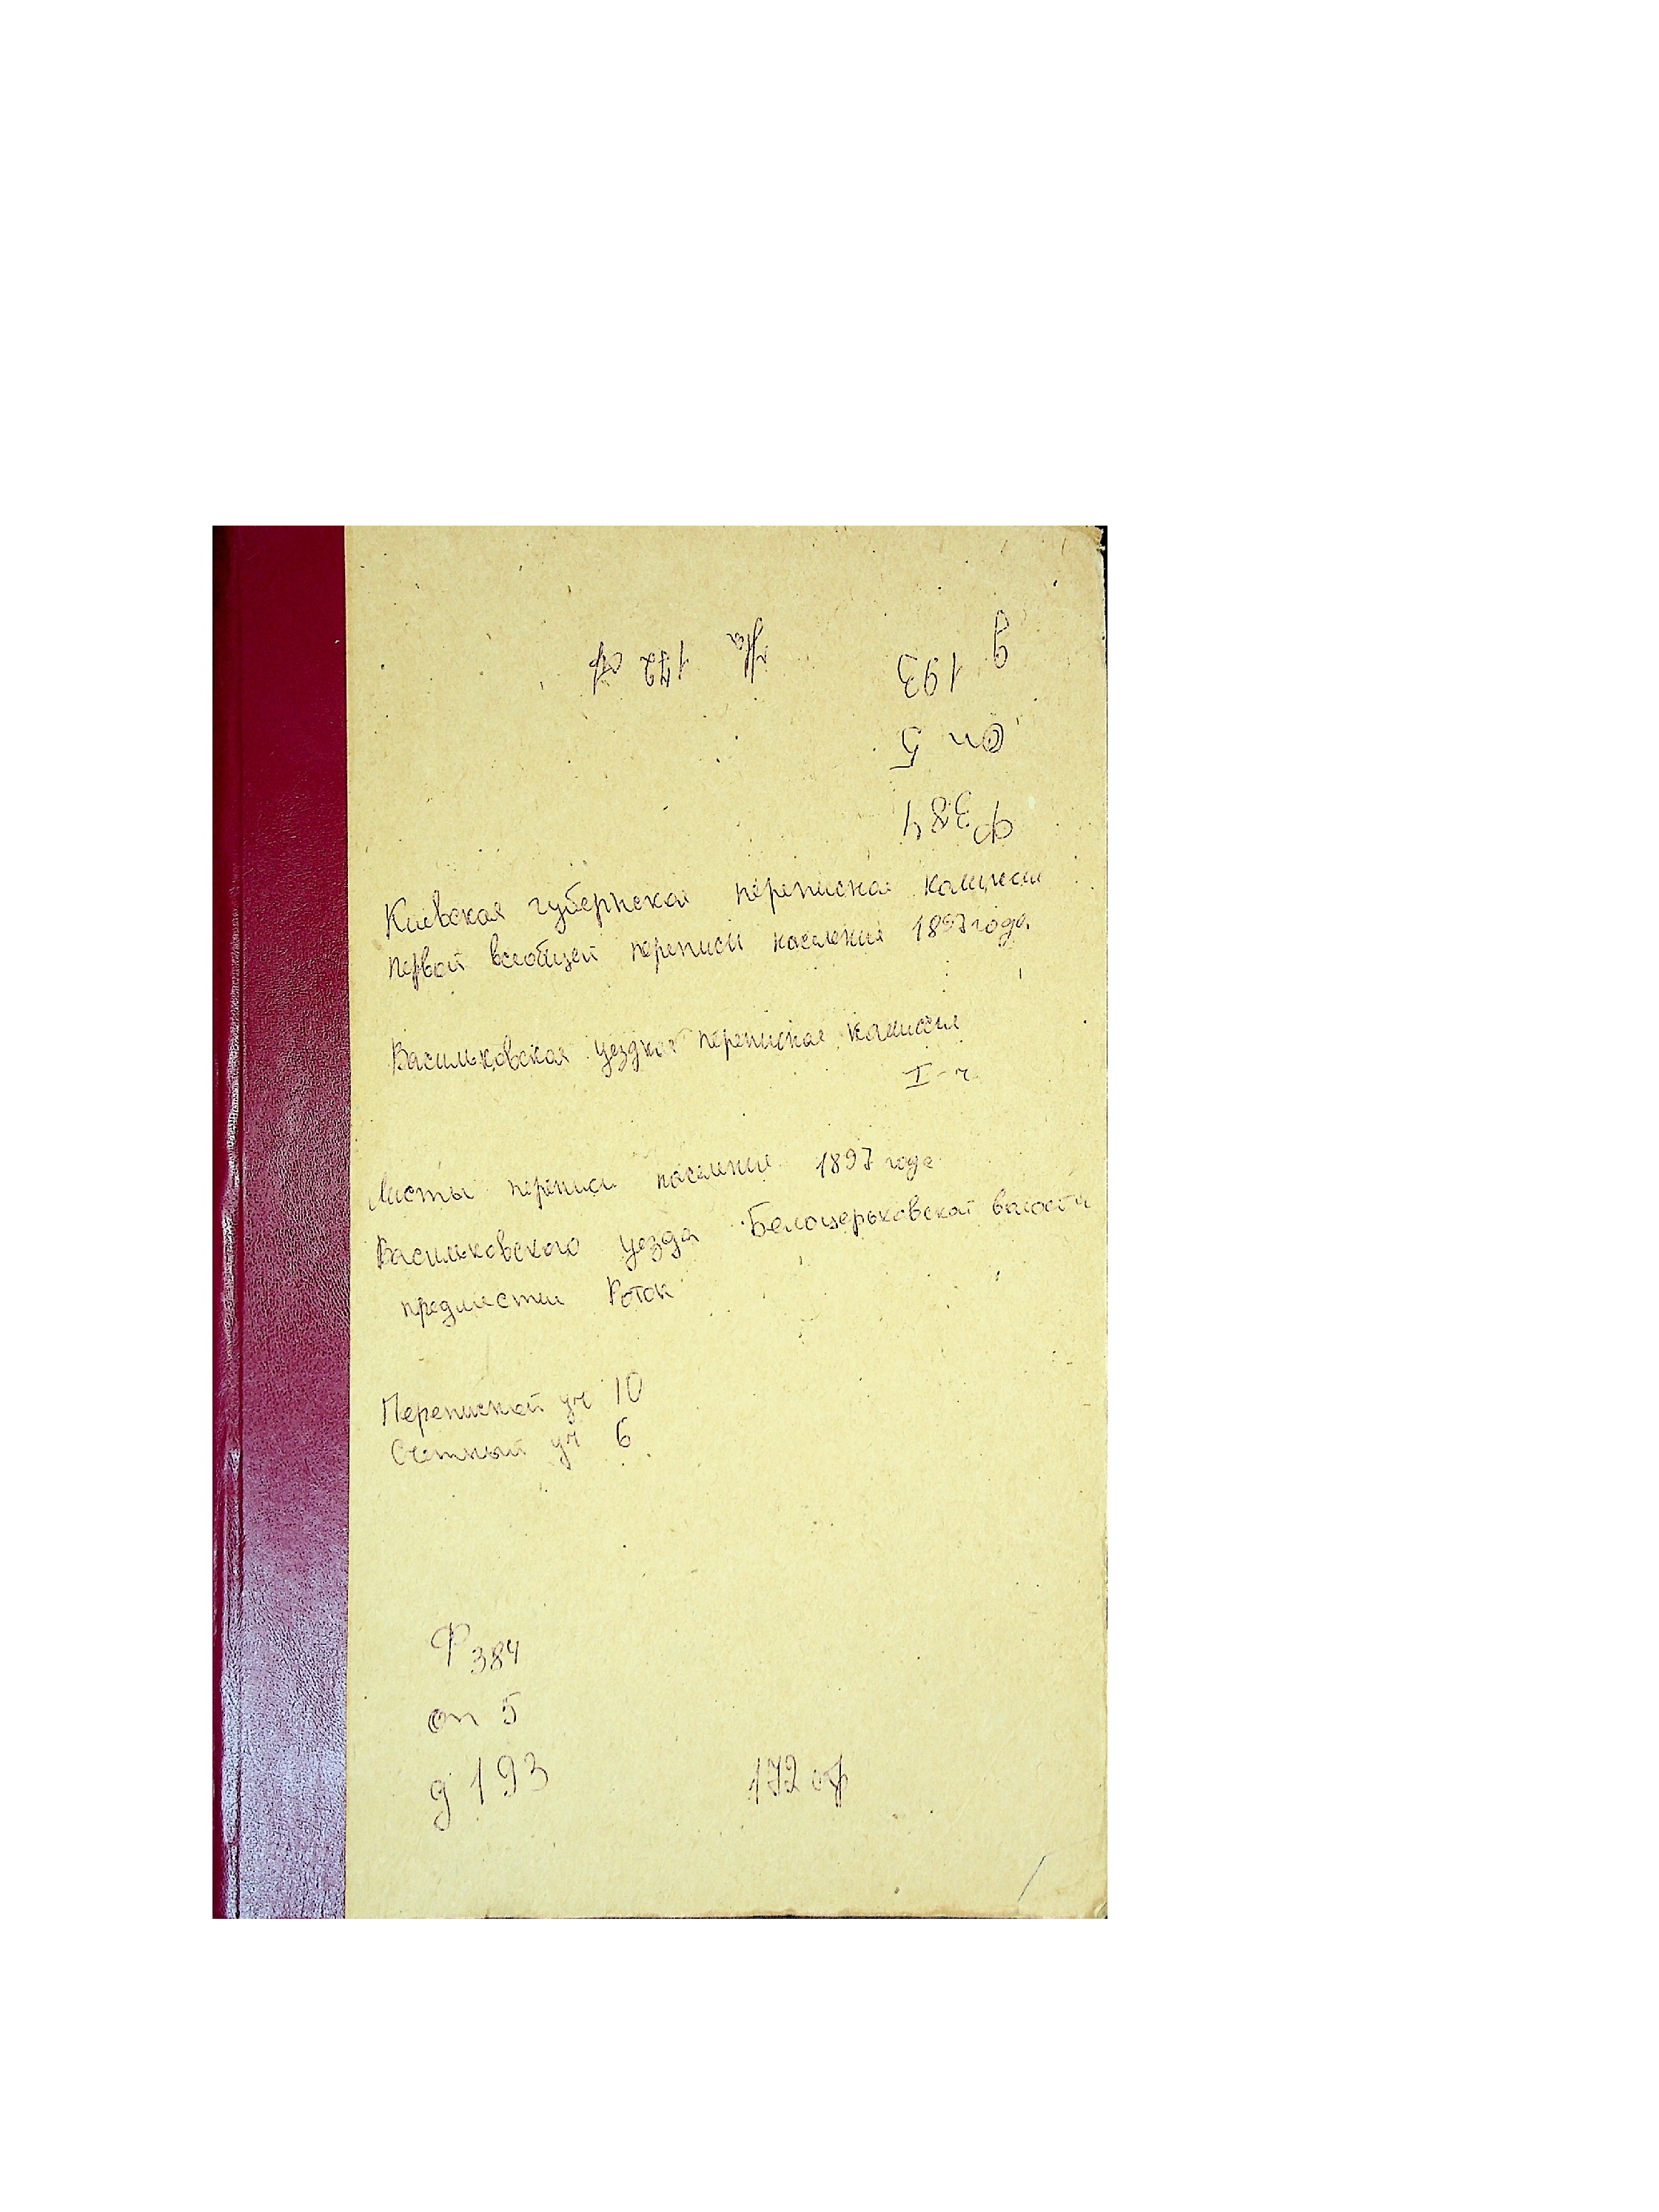 Ф 384
Оп 5
д 193
На 172
Киевская губернская переписная комиссия
первой всеобщей переписи населения 1897 года
Васильковская уездная переписная комиссия
I-ч
Листы переписи населения 1897 года
Васильковского уезда Белоцерковской волости
предместия Роток
Переписной уч 10
Счетный уч 6
Ф 384
оп 5
д 193
172